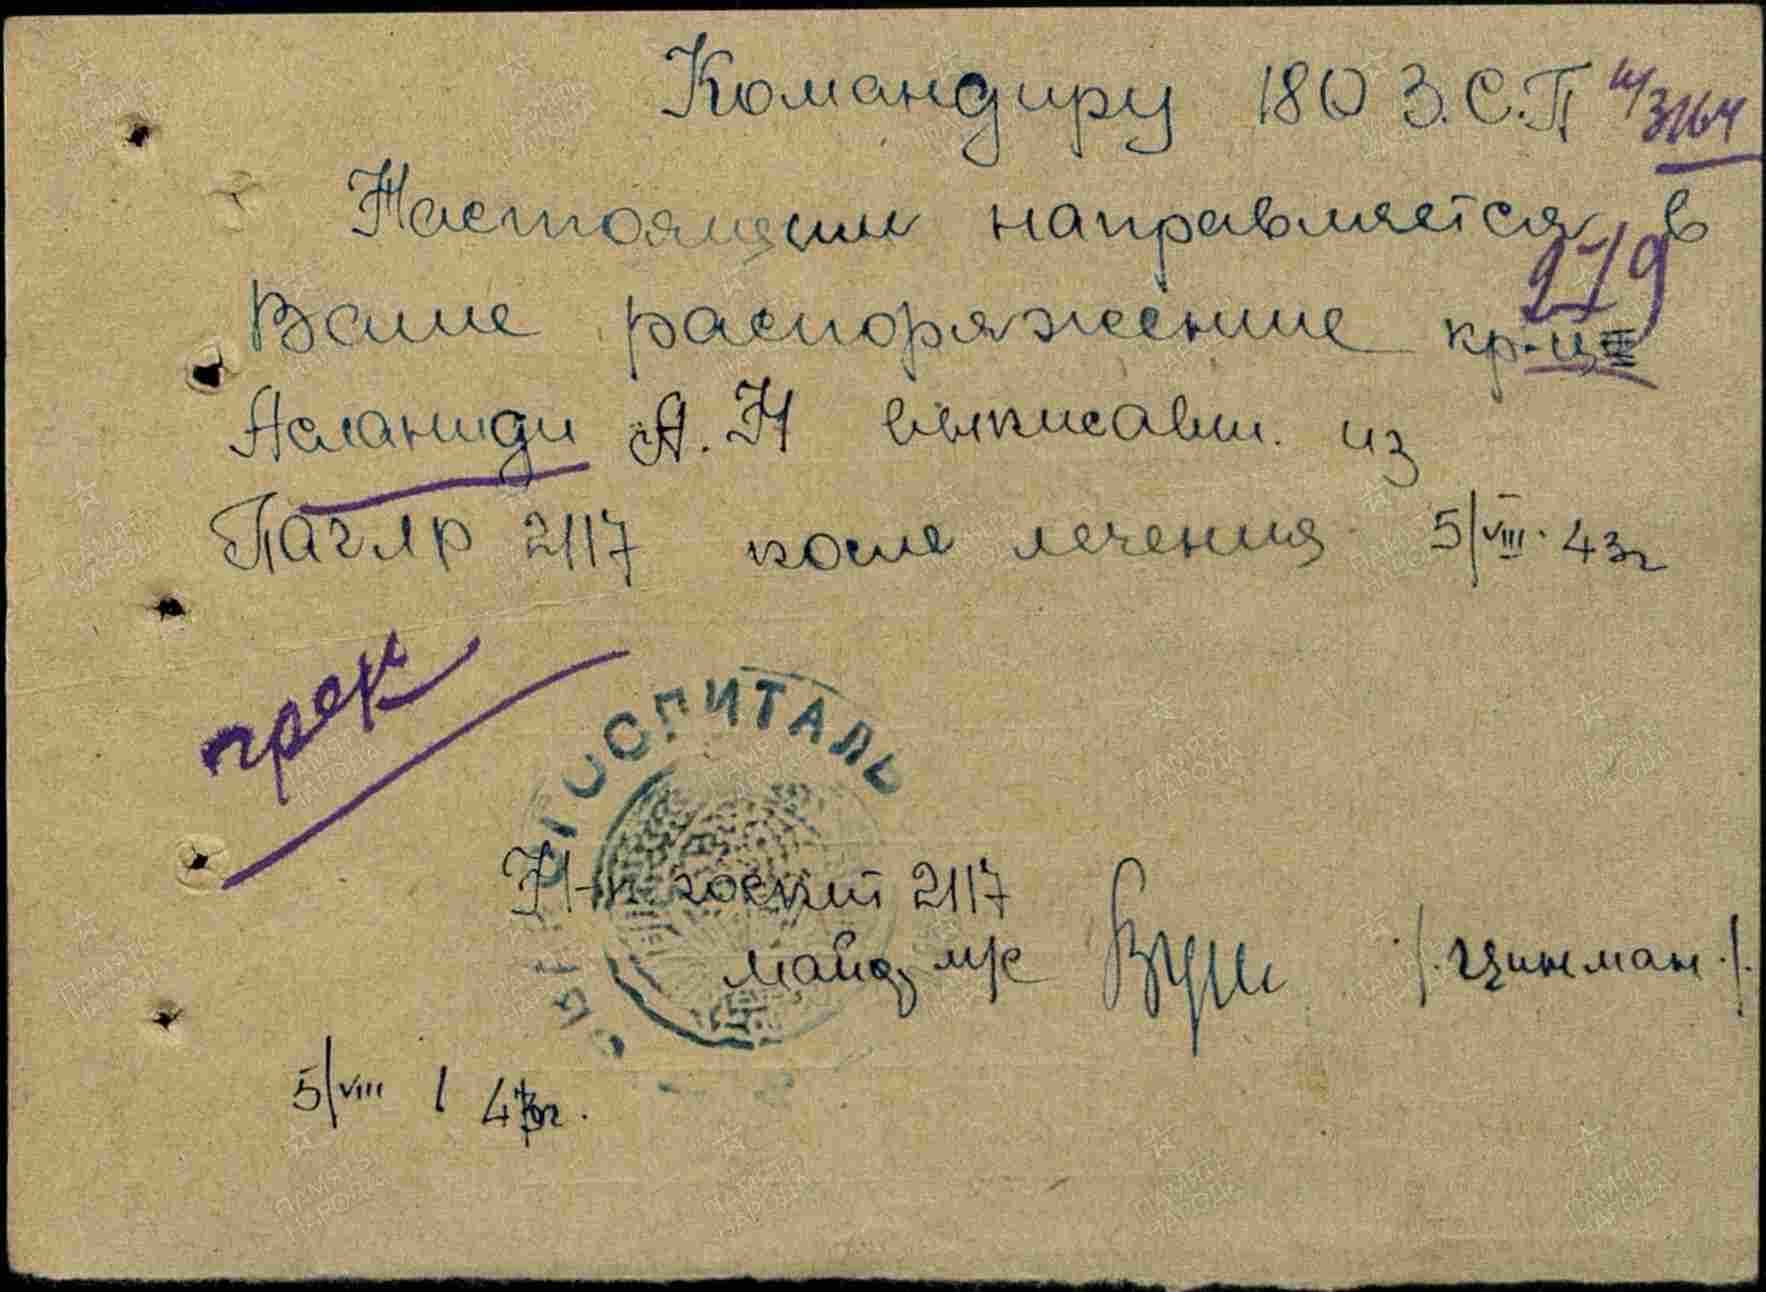 Командиру 180 З.С.П ш/3164
Настоящим направляется в
219
Ваше распоряжение кр-ц
Асланиди А.Н выписавш. из
ПАГЛР 2117 после лечения 5/VIII. 43г
грек
ГОСПИТАЛЬ
Н-к госпит 2117
майор м/с /.Цинман./.
5/VIII / 43г.
ПАМЯТЬ НАРОДА